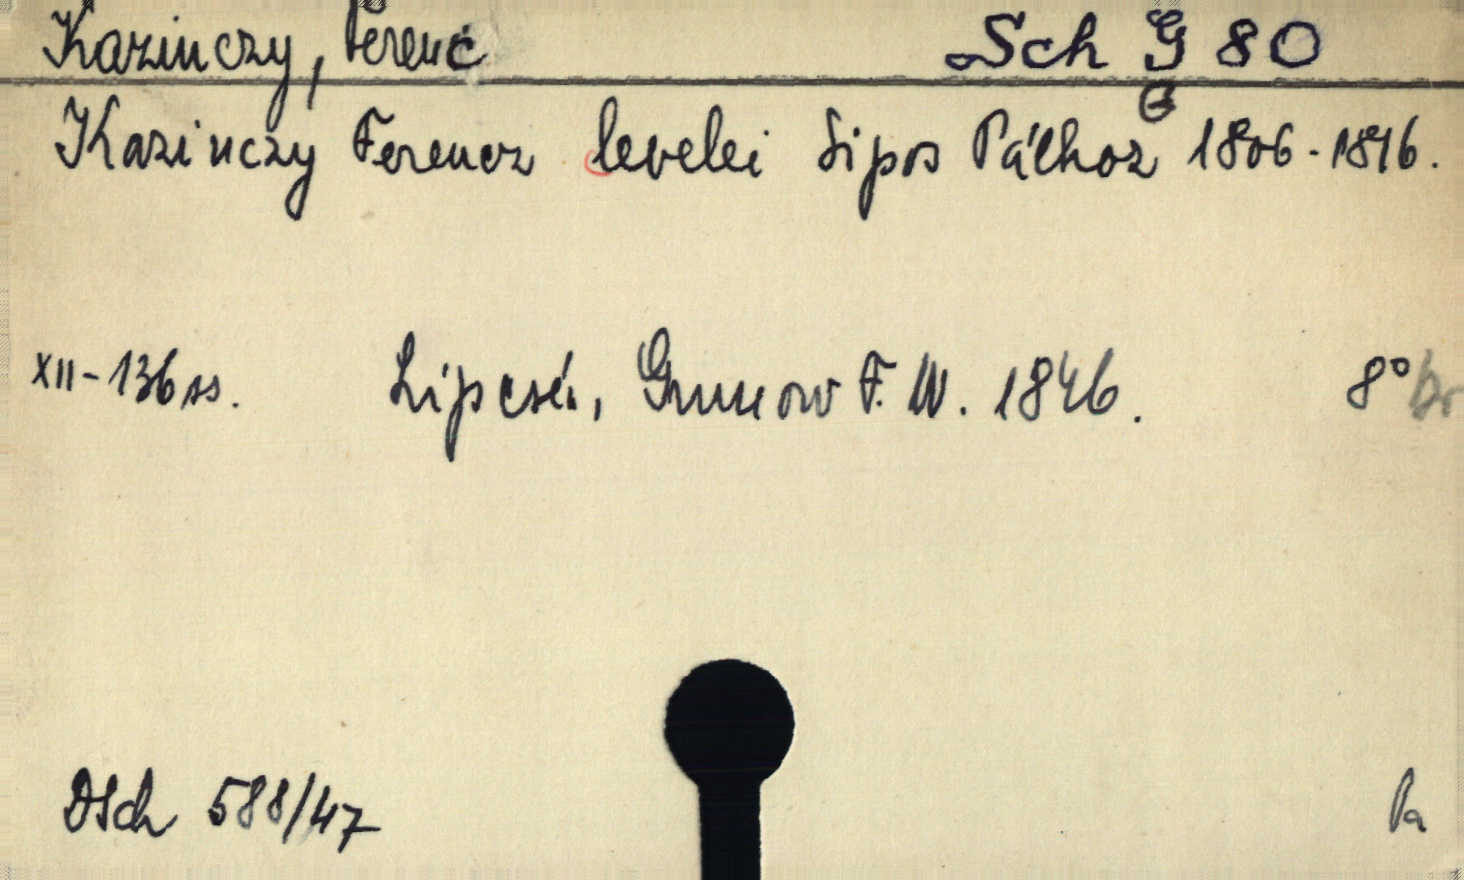 Kazinczy, Ferenc Sch G 80
G
Kazinczy Ferencz levelei Sipos Pálhoz 1806-1816.
XII-136 ss. Lipcsén, Grunow F. W. 1846. 8° br
DSch 588/47 Pa